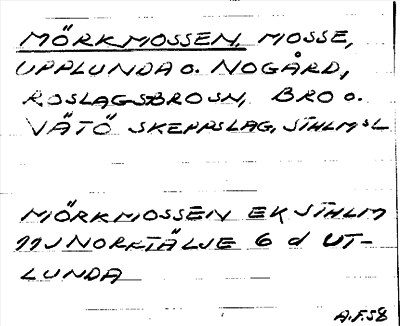 MÖRKMOSSEN, MOSSE,
UPPLUNDA O. NOGÅRD,
ROSLAGSBROSN, BRO O.
VÄTÖ SKEPPSLAG, STHLMSL
MÖRKMOSSEN EK STHLM
11J NORRTÄLJE 6 d UT-
LUNDA
A.F.58